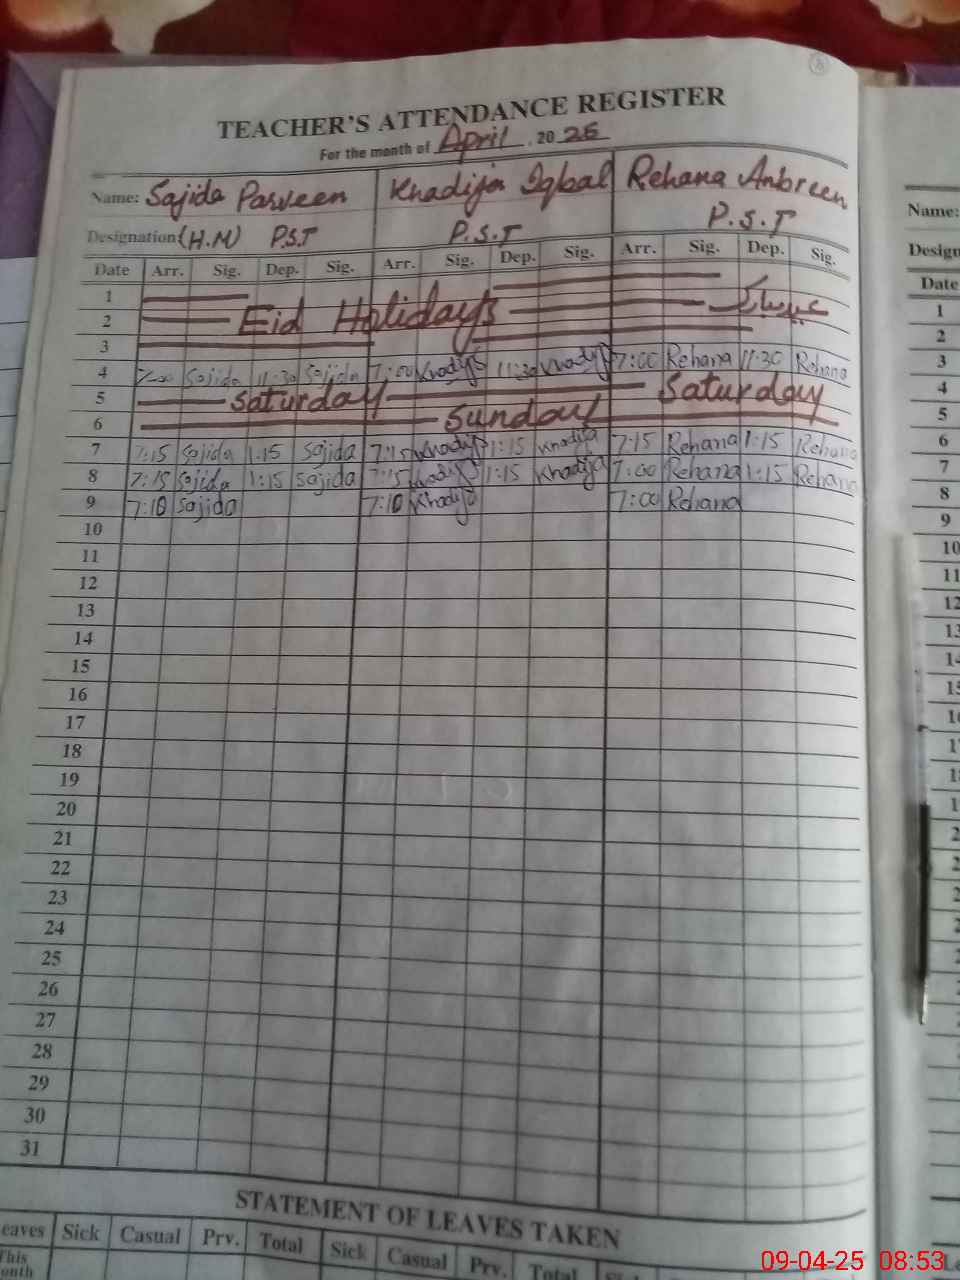 TEACHER'S ATTENDANCE REGISTER
For the month of April, 2025
Name: Sajida Parveen Khadija Iqbal Rehana Anbreen
Designation (H.M) P.S.T P.S.T P.S.T
Date Arr. Sig. Dep. Sig. Arr. Sig. Dep. Sig. Arr. Sig. Dep. Sig.
1
2 Eid Holidays عید مبارک
3
4 7:00 Sajida 11:30 Sajida 7:00 Khadija 11:30 Khadija 7:00 Rehana 11:30 Rehana
5 Saturday Saturday
6 Sunday
7 7:15 Sajida 1:15 Sajida 7:15 Khadija 1:15 Khadija 7:15 Rehana 1:15 Rehana
8 7:15 Sajida 1:15 Sajida 7:15 Khadija 1:15 Khadija 7:00 Rehana 1:15 Rehana
9 7:10 Sajida 7:10 Khadija 7:00 Rehana
10
11
12
13
14
15
16
17
18
19
20
21
22
23
24
25
26
27
28
29
30
31
STATEMENT OF LEAVES TAKEN
eaves Sick Casual Prv. Total Sick Casual Prv. Total
This
onth
Name:
Date
1
2
3
4
5
6
7
8
9
10
11
12
09-04-25 08:53